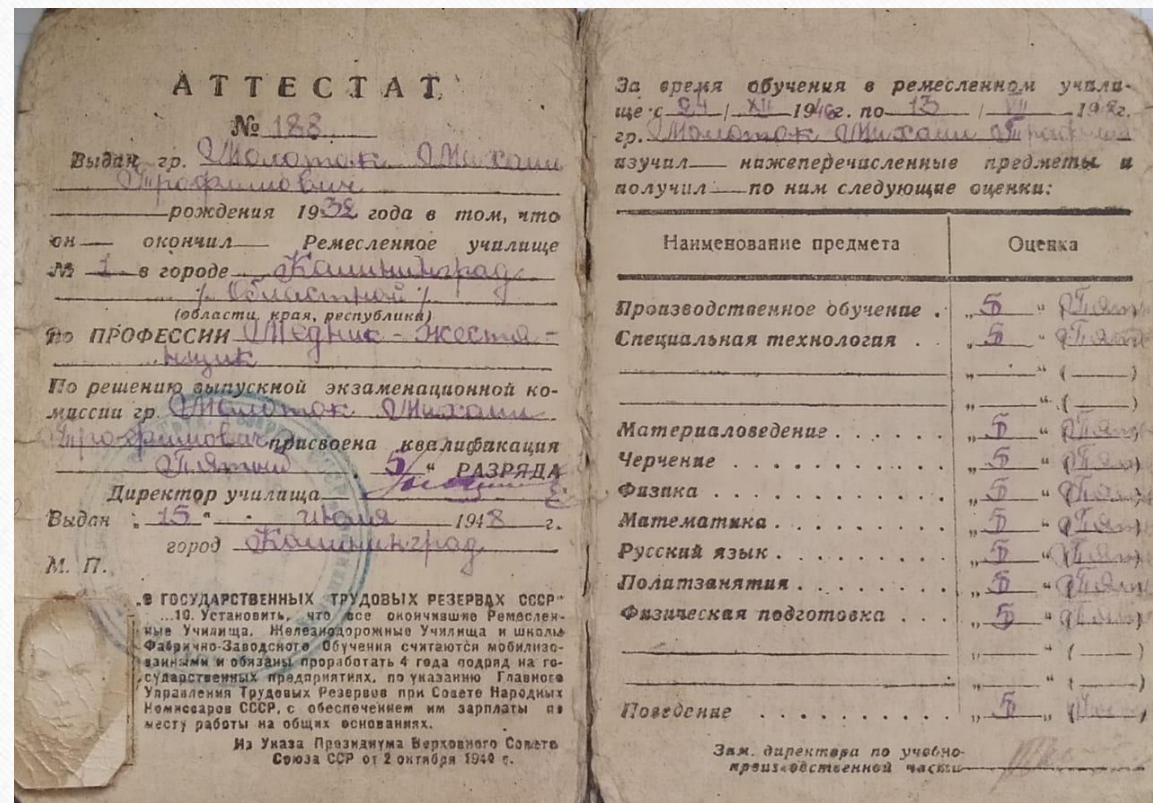 АТТЕСТАТ
№ 188
Выдан гр. Молоток Михаил
Трофимович
рождения 1932 года в том, что
он окончил Ремесленное училище
№ 1 в городе Калининград
/. Областной /.
(области, края, республики)
по ПРОФЕССИИ Медник - жестя-
нщик
По решению выпускной экзаменационной ко-
миссии гр. Молоток Михаил
Трофимович присвоена квалификация
Пятый „5“ РАЗРЯДА
Директор училища
Выдан „15“ июля 1948 г.
город Калининград
М. П.
„О ГОСУДАРСТВЕННЫХ ТРУДОВЫХ РЕЗЕРВАХ СССР“
...10. Установить, что все окончившие Ремеслен-
ные Училища, Железнодорожные Училища и школы
Фабрично-Заводского Обучения считаются мобилизо-
ванными и обязаны проработать 4 года подряд на го-
сударственных предприятиях, по указанию Главного
Управления Трудовых Резервов при Совете Народных
Комиссаров СССР, с обеспечением им зарплаты по
месту работы на общих основаниях.
Из Указа Президиума Верховного Совета
Союза ССР от 2 октября 1940 г.
За время обучения в ремесленном учили-
ще с 24 / XII 1946г. по 13 / VII 1948г.
гр. Молоток Михаил Трофимович
изучил нижеперечисленные предметы и
получил по ним следующие оценки:
Наименование предмета Оценка
Производственное обучение . „5“ (Пять)
Специальная технология . . „5“ (Пять)
Материаловедение . . . . . . „5“ (Пять)
Черчение . . . . . . . . . . „5“ (Пять)
Физика . . . . . . . . . . . „5“ (Пять)
Математика . . . . . . . . . „5“ (Пять)
Русский язык . . . . . . . . „5“ (Пять)
Политзанятия . . . . . . . . „5“ (Пять)
Физическая подготовка . . . „5“ (Пять)
Поведение . . . . . . . . . „5“ (Пять)
Зам. директора по учебно-
производственной части